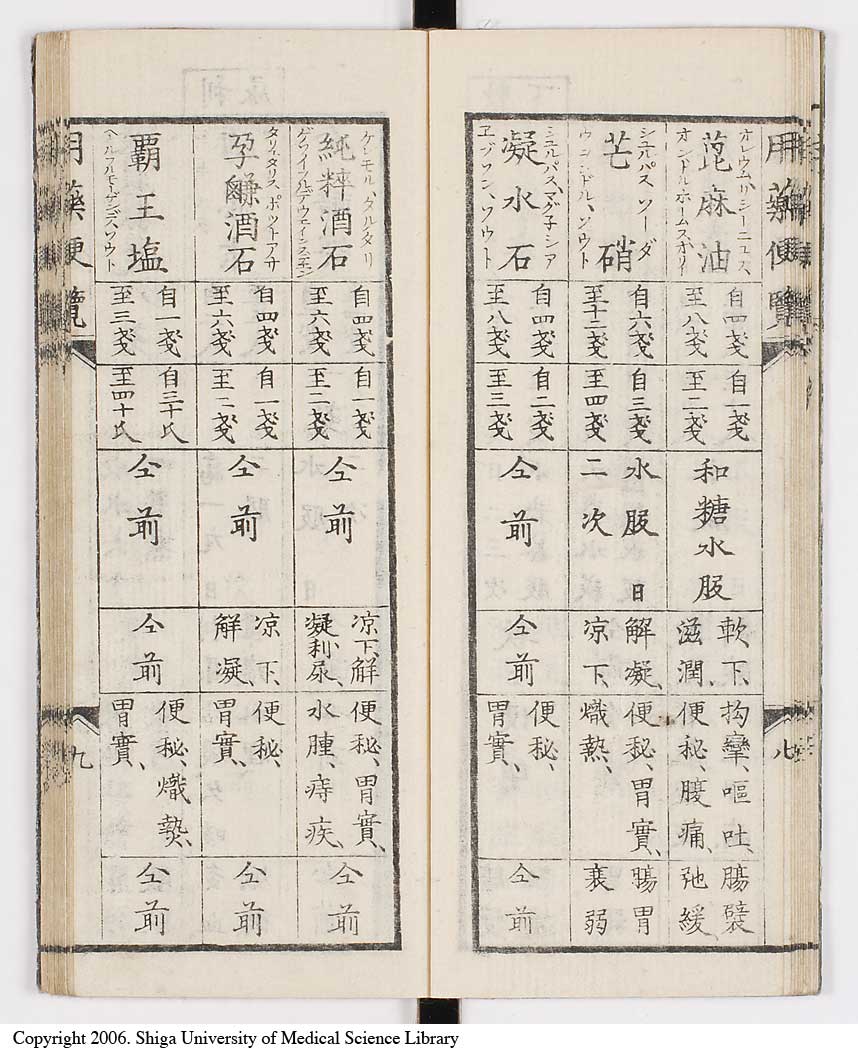 用藥便覽
八
オレウムリシーニュス、
蓖麻油
オンドルホームスオリイ
自四戔
至八戔
自一戔
至二戔
和糖水服
軟下、
滋潤、
拘攣、嘔吐、
便秘、腹痛、
腸襞
弛緩
シュルパスソーダ
芒硝
ウヲンドル、ソウト
自六戔
至十二戔
自三戔
至四戔
水服日
二次
解凝、
凉下、
便秘、胃實、
熾熱、
腸胃
衰弱
シュルパス、マグ子シア
凝水石
ヱプソン、ソウト
自四戔
至八戔
自二戔
至三戔
仝前
仝前
便秘、
胃實、
仝前
ケレモル、タルタリ
純粹酒石
自四戔
至六戔
自一戔
至二戔
仝前
凉下、解
凝、利尿、
便秘、胃實、
水腫、痔疾、
仝前
タリタリス、ポットアサ
孕鹻酒石
自四戔
至六戔
自一戔
至二戔
仝前
凉下、
解凝、
便秘、
胃實、
仝前
覇王塩
自一戔
至三戔
自三十氏
至四十氏
仝前
仝前
便秘、熾熱、
胃實、
仝前
用藥便覽
九
Copyright 2006. Shiga University of Medical Science Library